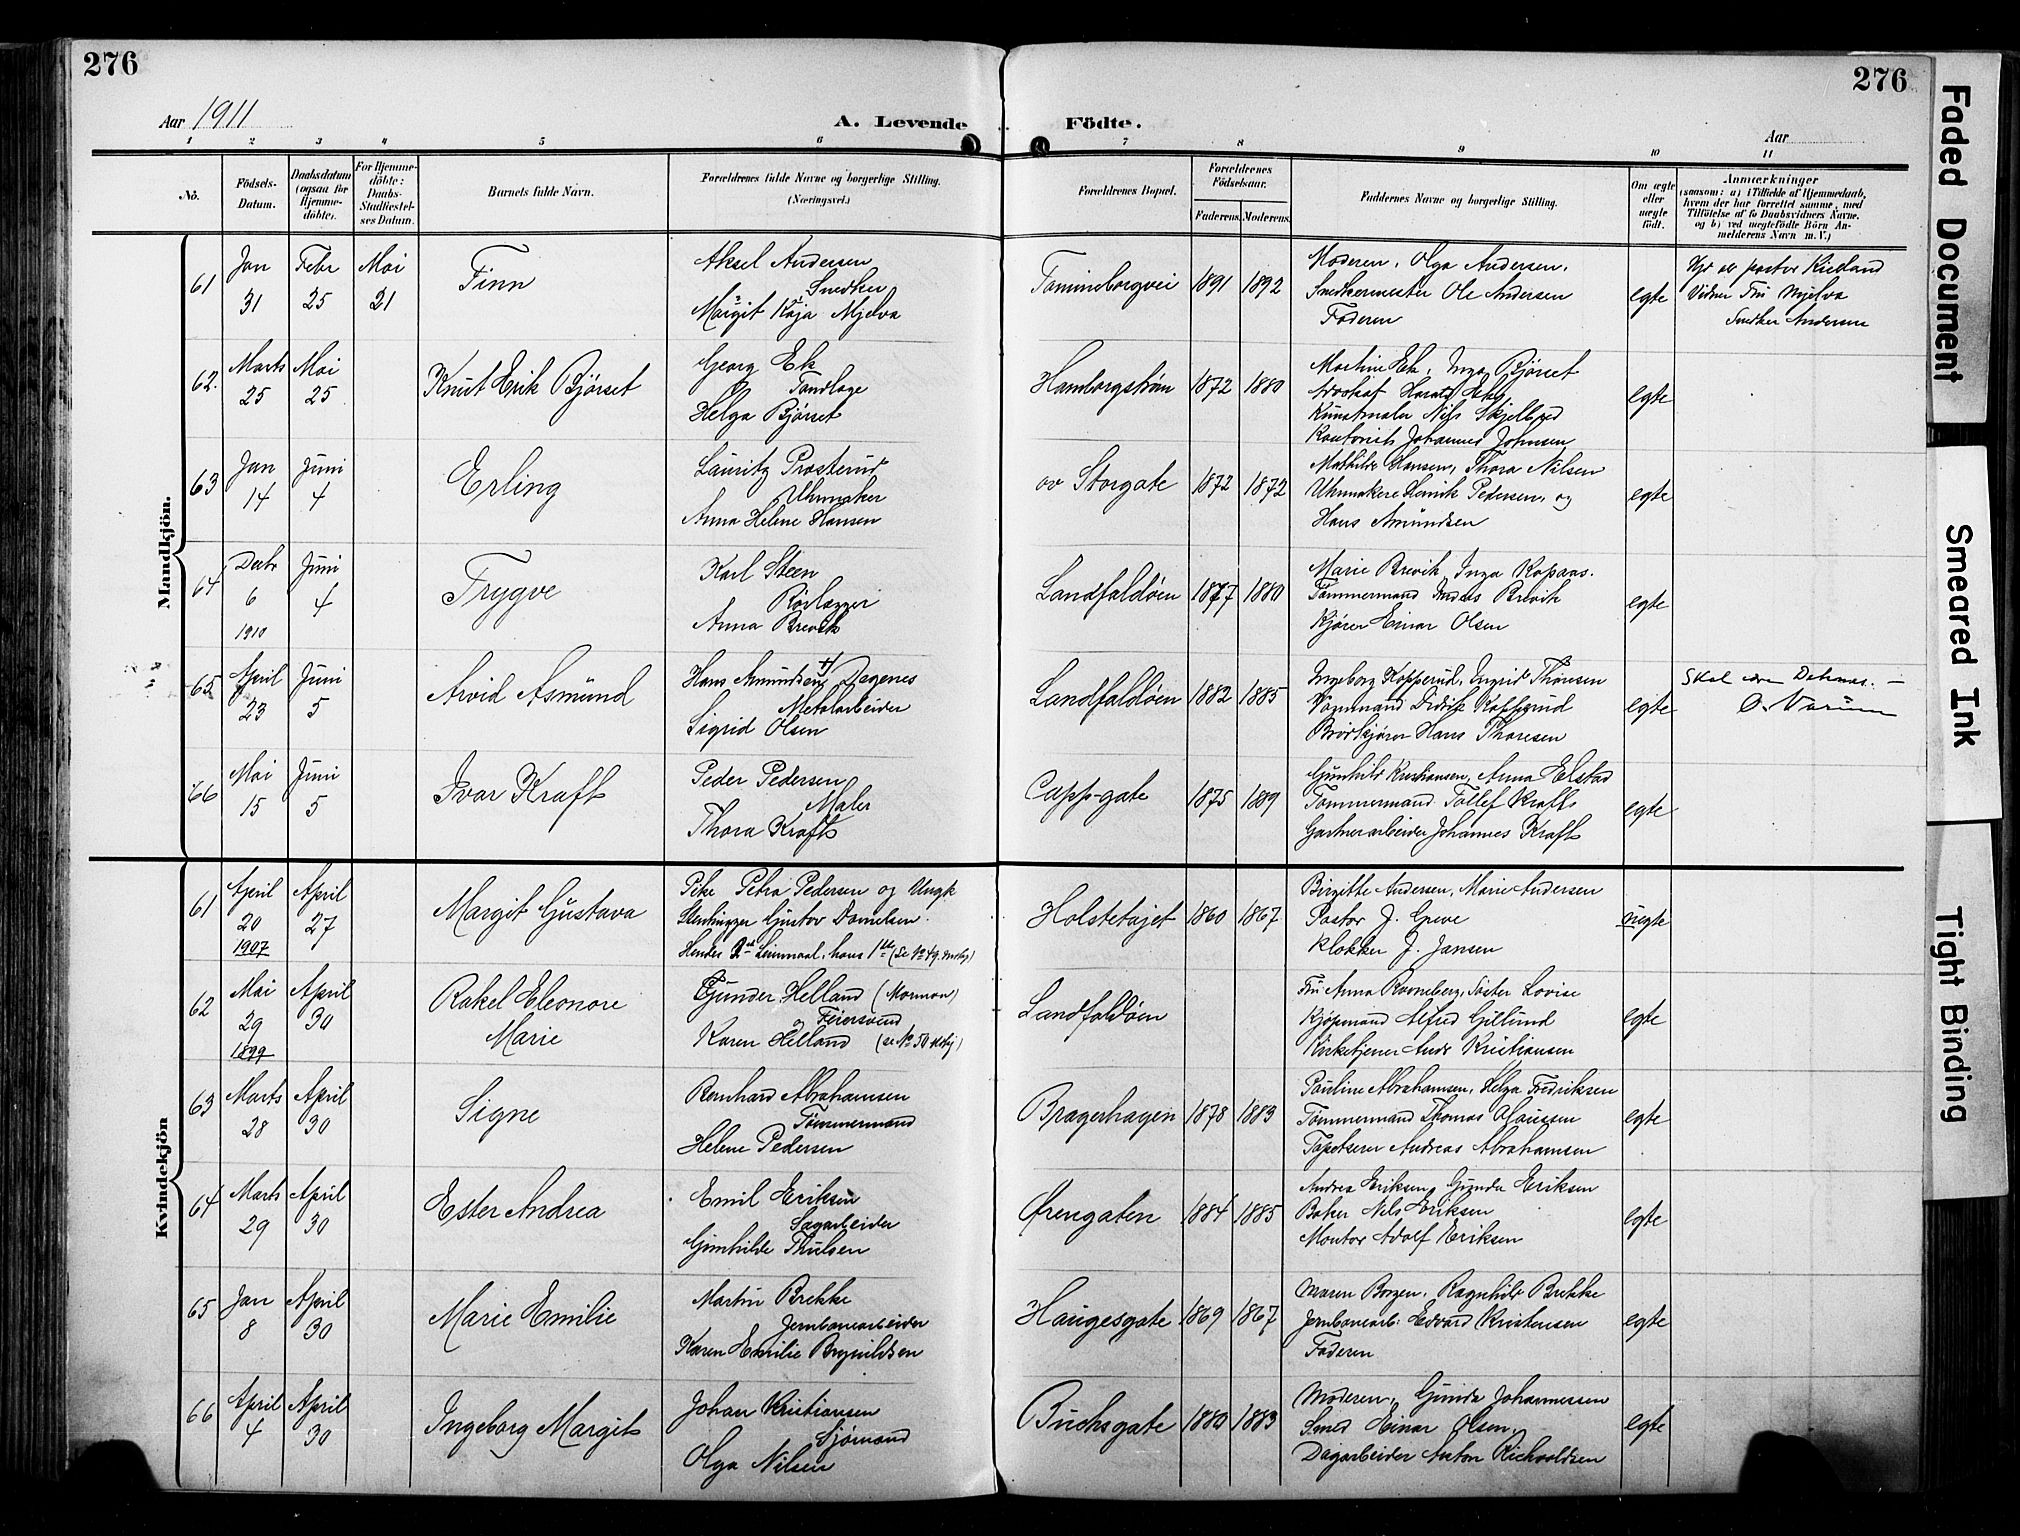 276
276
Aar 1911
A. Levende Födte.
Aar
1 2 3 4 5 6 7 8 9 10 11
No.
Födsels-Datum.
Daabsdatum (ogsaa for Hjemme-döbte).
For Hjemme-döbte: Daabs-Stadfæstel-ses Datum.
Barnets fulde Navn.
Forældrenes fulde Navne og borgerlige Stilling. (Næringsvei.)
Forældrenes Bopæl.
Forældrenes Födselsaar.
Faderens. Moderens.
Faddernes Navne og borgerlige Stilling.
Om ægte eller uægte födt.
Anmærkninger
(saasom: a) i Tilfælde af Hjemmedaab, hvem der har forrettet samme, med Tilföielse af to Daabsvidners Navne. og b) ved uægtefödte Börn An-melderens Navn m. V.)
Mandkjön.
61 Jan 31 Febr 25 Mai 21 Finn
Aksel Andersen
Snedker
Margit Kaja Mjelva
Tømmeborgvei 1891 1892
Moderen, Olga Andersen,
Snedkermester Ole Andersen
Faderen
egte
Hjd av pastor Kielland
Vidner Fru Mjelva
Snedker Andersen
62. Marts 25 Mai 25 Knut Erik Bjørset
Georg Ek
Tandlæge
Helga Bjørset
Hamborgstrøm 1872 1880
Martine Ek, Inga Bjørset
Advokat Harald
Kunstmaler Nils Skjelbred
Johannes Johnsen
egte
63 Jan 14 Juni 4 Erling
Lauritz Prosterud
Uhrmaker
Anna Helene Hansen
ov Storgate 1872 1872
Mathilde Hansen, Thora Nilsen
Uhrmakere Henrik Pedersen, og
Hans Amundsen
egte
64 Decbr 6 1910 Juni 4 Trygve
Karl Steen
Rørlægger
Anna Brevik
Landfaldøen 1877 1880
Marie Brevik, Inga Kopaas.
Tømmermand Andreas Brevik
Kjører Einar Olsen
egte
65 April 23 Juni 5 Arvid Asmund
Hans Amundsen Dagenes
Metalarbeider
Sigrid Olsen
Landfaldøen 1882 1885
Ingeborg Kopperud, Ingrid Thoresen
Didrik Kopperud
Hans Thoresen
egte
Skal
66 Mai 15 Juni 5 Ivar Kraft
Peder Pedersen
Maler
Thora Kraft
Cappsgate 1875 1889
Gunhild Kristiansen, Anna Elstad
Tømmermand Tollef Kraft
Gartnerarbeider Johannes Kraft
egte
Kvindekjön
61 April 20 1907 April 27 Margit Gustava
Pike Petra Pedersen og Ungk
Stenhugger Gustav Danielsen.
Hendes 2det Leiermaal, hans 1ste (Se No 49. mstkj)
Holstetøjet 1860 1867
Birgitte Andersen, Marie Andersen
Pastor J. Greve
Klokker J. Jansen
uegte
62 Mai 29 1899 April 30 Rakel Eleonore Marie
Gunder Helland (Mormon)
Feiersvend
Karen Helland (se No 50 mstkj)
Landfaldøen
Fru Anna Ravneberg, Søster Lovise
Kjøpmand Alfred Gillund
Kirketjener Andr Kristiansen
egte
63 Marts 28 April 30 Signe
Bernhard Abrahamsen
Tømmermand
Helene Pedersen
Bragerhagen 1878 1883
Pauline Abrahamsen, Helga Fredriksen
Tømmermand Thomas Olaussen
Tapetserer Andreas Abrahamsen
egte
64 Marts 29 April 30 Ester Andrea
Emil Eriksen
Sagarbeider
Gunhilde Thulsen
Ørengaten 1884 1885
Andrea Eriksen, Gunda Eriksen
Baker Nils Eriksen
Montør Adolf Eriksen
egte
65 Jan 8 April 30 Marie Emilie
Martin Brekke
Jernbanearbeider
Karen Emilie Brynildsen
Haugesgate 1869 1867
Maren Borgen, Ragnhild Brekke
Jernbanearb: Edvard Kristensen
Faderen
egte
66 April 4 April 30 Ingeborg Margit
Johan Kristiansen
Sjømand
Olga Nilsen
Buchsgate 1880 1883
Moderen, Gunda Johannessen
Smed Einar Olsen,
Dagarbeider Anton Richvoldsen
egte
Faded Document
Smeared Ink
Tight Binding